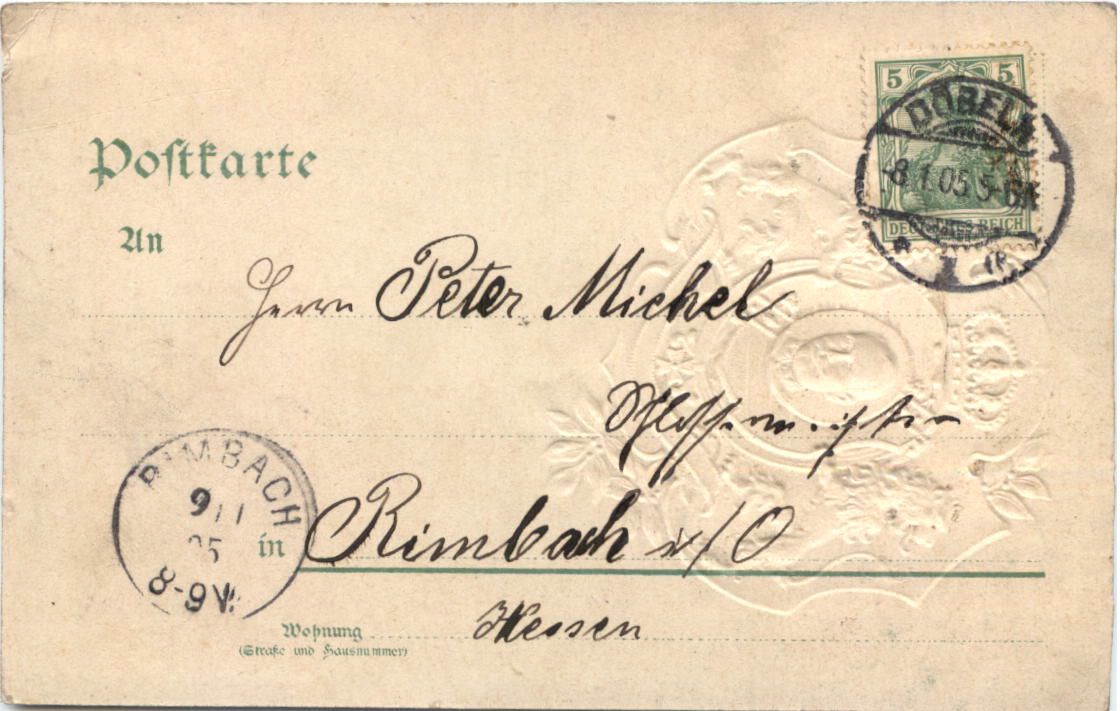 Postkarte
5 5
DÖBELN
-8.1.05 5-6N
DEUTSCHES REICH
* 1 (R
An
Herrn Peter Michel
Schlossermeister
RIMBACH
9/1
05
8-9V.
in Rimbach i/O
Wohnung Hessen
(Straße und Hausnummer)